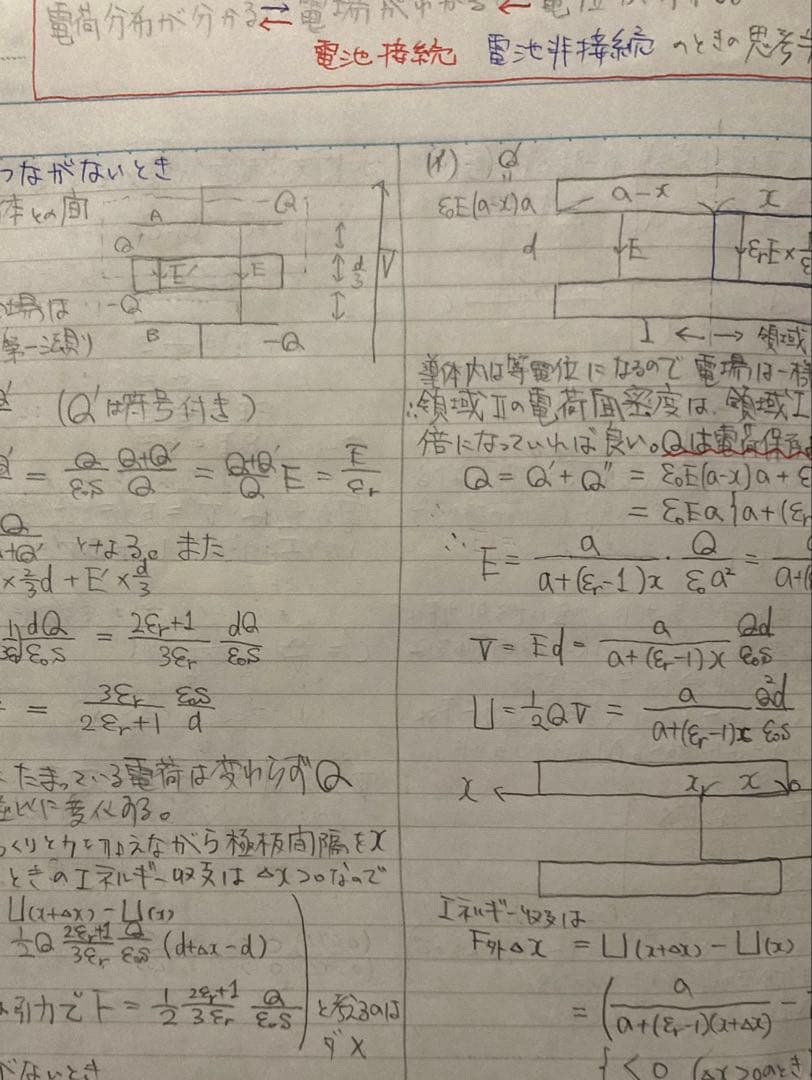 電荷分布が分かる ⇄ 電場が分かる ←
電池接続 電池非接続 のときの思考
つながないとき
体との面
A
-Q
Q'
E'
E
d/3
V
-Q
B
-Q
(イ)
Q'
=
ε₀E(a-x)a
a-x
x
d
E
εrE×
I ←|→ 領域
(Q'は符号付き)
= Q/ε₀S (Q+Q')/Q = (Q+Q')/Q E = E/εr
となる。また
×2/3 d + E'×d/3
dQ/ε₀S = (2εr+1)/3εr dQ/ε₀S
= 3εr/(2εr+1) ε₀S/d
たまっている電荷は変わらずQ
力を加えながら極板間隔をx
ときのエネルギー収支は Δx>0なので
U(x+Δx)-U(x)
1/2 Q (2εr+1)/3εr Q/ε₀S (d+Δx-d)
引力で F = 1/2 (2εr+1)/3εr Q/ε₀S
と考えるのは
ダメ
がないとき
導体内は等電位になるので 電場は一様
∴領域Ⅱの電荷面密度は、領域Ⅰ
倍になっていれば良い。Qは電荷保存
Q = Q' + Q'' = ε₀E(a-x)a +
= ε₀Ea{a+(εr
∴ E = a/(a+(εr-1)x) · Q/ε₀a² =
V = Ed = a/(a+(εr-1)x) Qd/ε₀S
U = 1/2 QV = a/(a+(εr-1)x) Q²d/ε₀S
x ←
x
x
0
エネルギー収支は
F外Δx = U(x+Δx) - U(x)
= (a/(a+(εr-1)(x+Δx)) -
{ <0 (Δx>0のとき